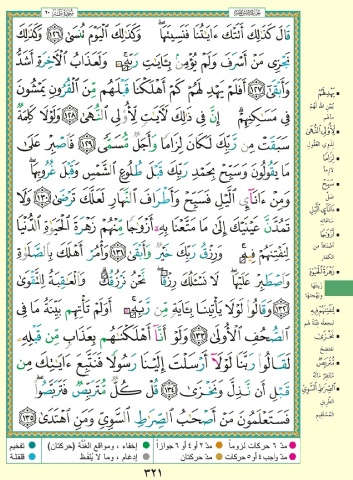 قَالَ كَذَٰلِكَ أَتَتْكَ ءَايَٰتُنَا فَنَسِيتَهَا ۖ وَكَذَٰلِكَ ٱلْيَوْمَ تُنسَىٰ ﴿١٢٦﴾ وَكَذَٰلِكَ
نَجْزِى مَنْ أَسْرَفَ وَلَمْ يُؤْمِنۢ بِـَٔايَٰتِ رَبِّهِۦ ۚ وَلَعَذَابُ ٱلْـَٔاخِرَةِ أَشَدُّ
وَأَبْقَىٰٓ ﴿١٢٧﴾ أَفَلَمْ يَهْدِ لَهُمْ كَمْ أَهْلَكْنَا قَبْلَهُم مِّنَ ٱلْقُرُونِ يَمْشُونَ
فِى مَسَٰكِنِهِمْ ۗ إِنَّ فِى ذَٰلِكَ لَـَٔايَٰتٍ لِّأُو۟لِى ٱلنُّهَىٰ ﴿١٢٨﴾ وَلَوْلَا كَلِمَةٌ
سَبَقَتْ مِن رَّبِّكَ لَكَانَ لِزَامًا وَأَجَلٌ مُّسَمًّى ﴿١٢٩﴾ فَٱصْبِرْ عَلَىٰ
مَا يَقُولُونَ وَسَبِّحْ بِحَمْدِ رَبِّكَ قَبْلَ طُلُوعِ ٱلشَّمْسِ وَقَبْلَ غُرُوبِهَا ۖ
وَمِنْ ءَانَآئِ ٱلَّيْلِ فَسَبِّحْ وَأَطْرَافَ ٱلنَّهَارِ لَعَلَّكَ تَرْضَىٰ ﴿١٣٠﴾ وَلَا
تَمُدَّنَّ عَيْنَيْكَ إِلَىٰ مَا مَتَّعْنَا بِهِۦٓ أَزْوَٰجًا مِّنْهُمْ زَهْرَةَ ٱلْحَيَوٰةِ ٱلدُّنْيَا
لِنَفْتِنَهُمْ فِيهِ ۚ وَرِزْقُ رَبِّكَ خَيْرٌ وَأَبْقَىٰ ﴿١٣١﴾ وَأْمُرْ أَهْلَكَ بِٱلصَّلَوٰةِ
وَٱصْطَبِرْ عَلَيْهَا ۖ لَا نَسْـَٔلُكَ رِزْقًا ۖ نَّحْنُ نَرْزُقُكَ ۗ وَٱلْعَٰقِبَةُ لِلتَّقْوَىٰ
﴿١٣٢﴾ وَقَالُوا۟ لَوْلَا يَأْتِينَا بِـَٔايَةٍ مِّن رَّبِّهِۦٓ ۚ أَوَلَمْ تَأْتِهِم بَيِّنَةُ مَا فِى
ٱلصُّحُفِ ٱلْأُولَىٰ ﴿١٣٣﴾ وَلَوْ أَنَّآ أَهْلَكْنَٰهُم بِعَذَابٍ مِّن قَبْلِهِۦ
لَقَالُوا۟ رَبَّنَا لَوْلَآ أَرْسَلْتَ إِلَيْنَا رَسُولًا فَنَتَّبِعَ ءَايَٰتِكَ مِن
قَبْلِ أَن نَّذِلَّ وَنَخْزَىٰ ﴿١٣٤﴾ قُلْ كُلٌّ مُّتَرَبِّصٌ فَتَرَبَّصُوا۟ ۖ
فَسَتَعْلَمُونَ مَنْ أَصْحَٰبُ ٱلصِّرَٰطِ ٱلسَّوِىِّ وَمَنِ ٱهْتَدَىٰ ﴿١٣٥﴾
يَهْدِ لَهُمْ
لِأُولِى ٱلنُّهَىٰ
لِزَامًا
سَبِّحْ
ءَانَآئِ ٱلَّيْلِ
أَزْوَٰجًا مِّنْهُمْ
زَهْرَةَ ٱلْحَيَوٰةِ
لِنَفْتِنَهُمْ فِيهِ
نَخْزَىٰ
مُّتَرَبِّصٌ
ٱلصِّرَٰطِ ٱلسَّوِىِّ
مد ٦ حركات لزوماً
مد ٢ أو ٤ أو ٦ جوازاً
إخفاء، ومواقع الغنّة (حركتان)
تفخيم
مد واجب ٤ أو ٥ حركات
مد حركتان
إدغام، وما لا يُلفظ
قلقلة
٣٢١